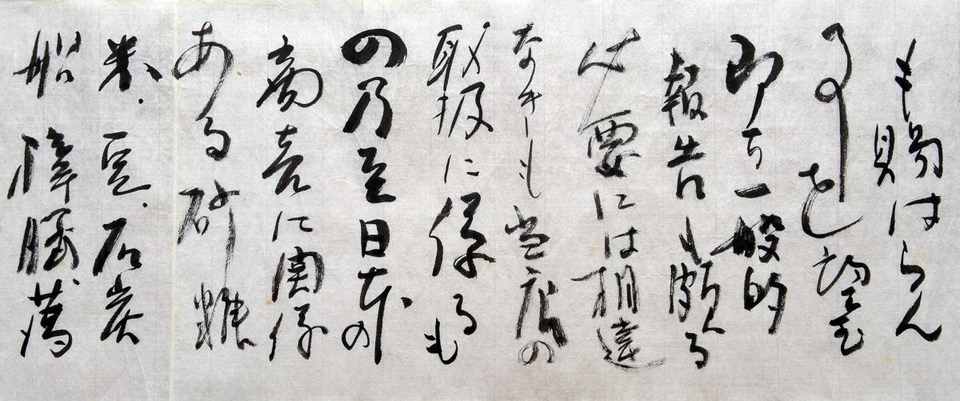 も賜はらん
事を望む
即ち一般的
報告も頗る
必要には相違
なきも当店の
取扱に係るも
の乃至日本の
商売に関係
ある砂糖
米、豆、石炭
船